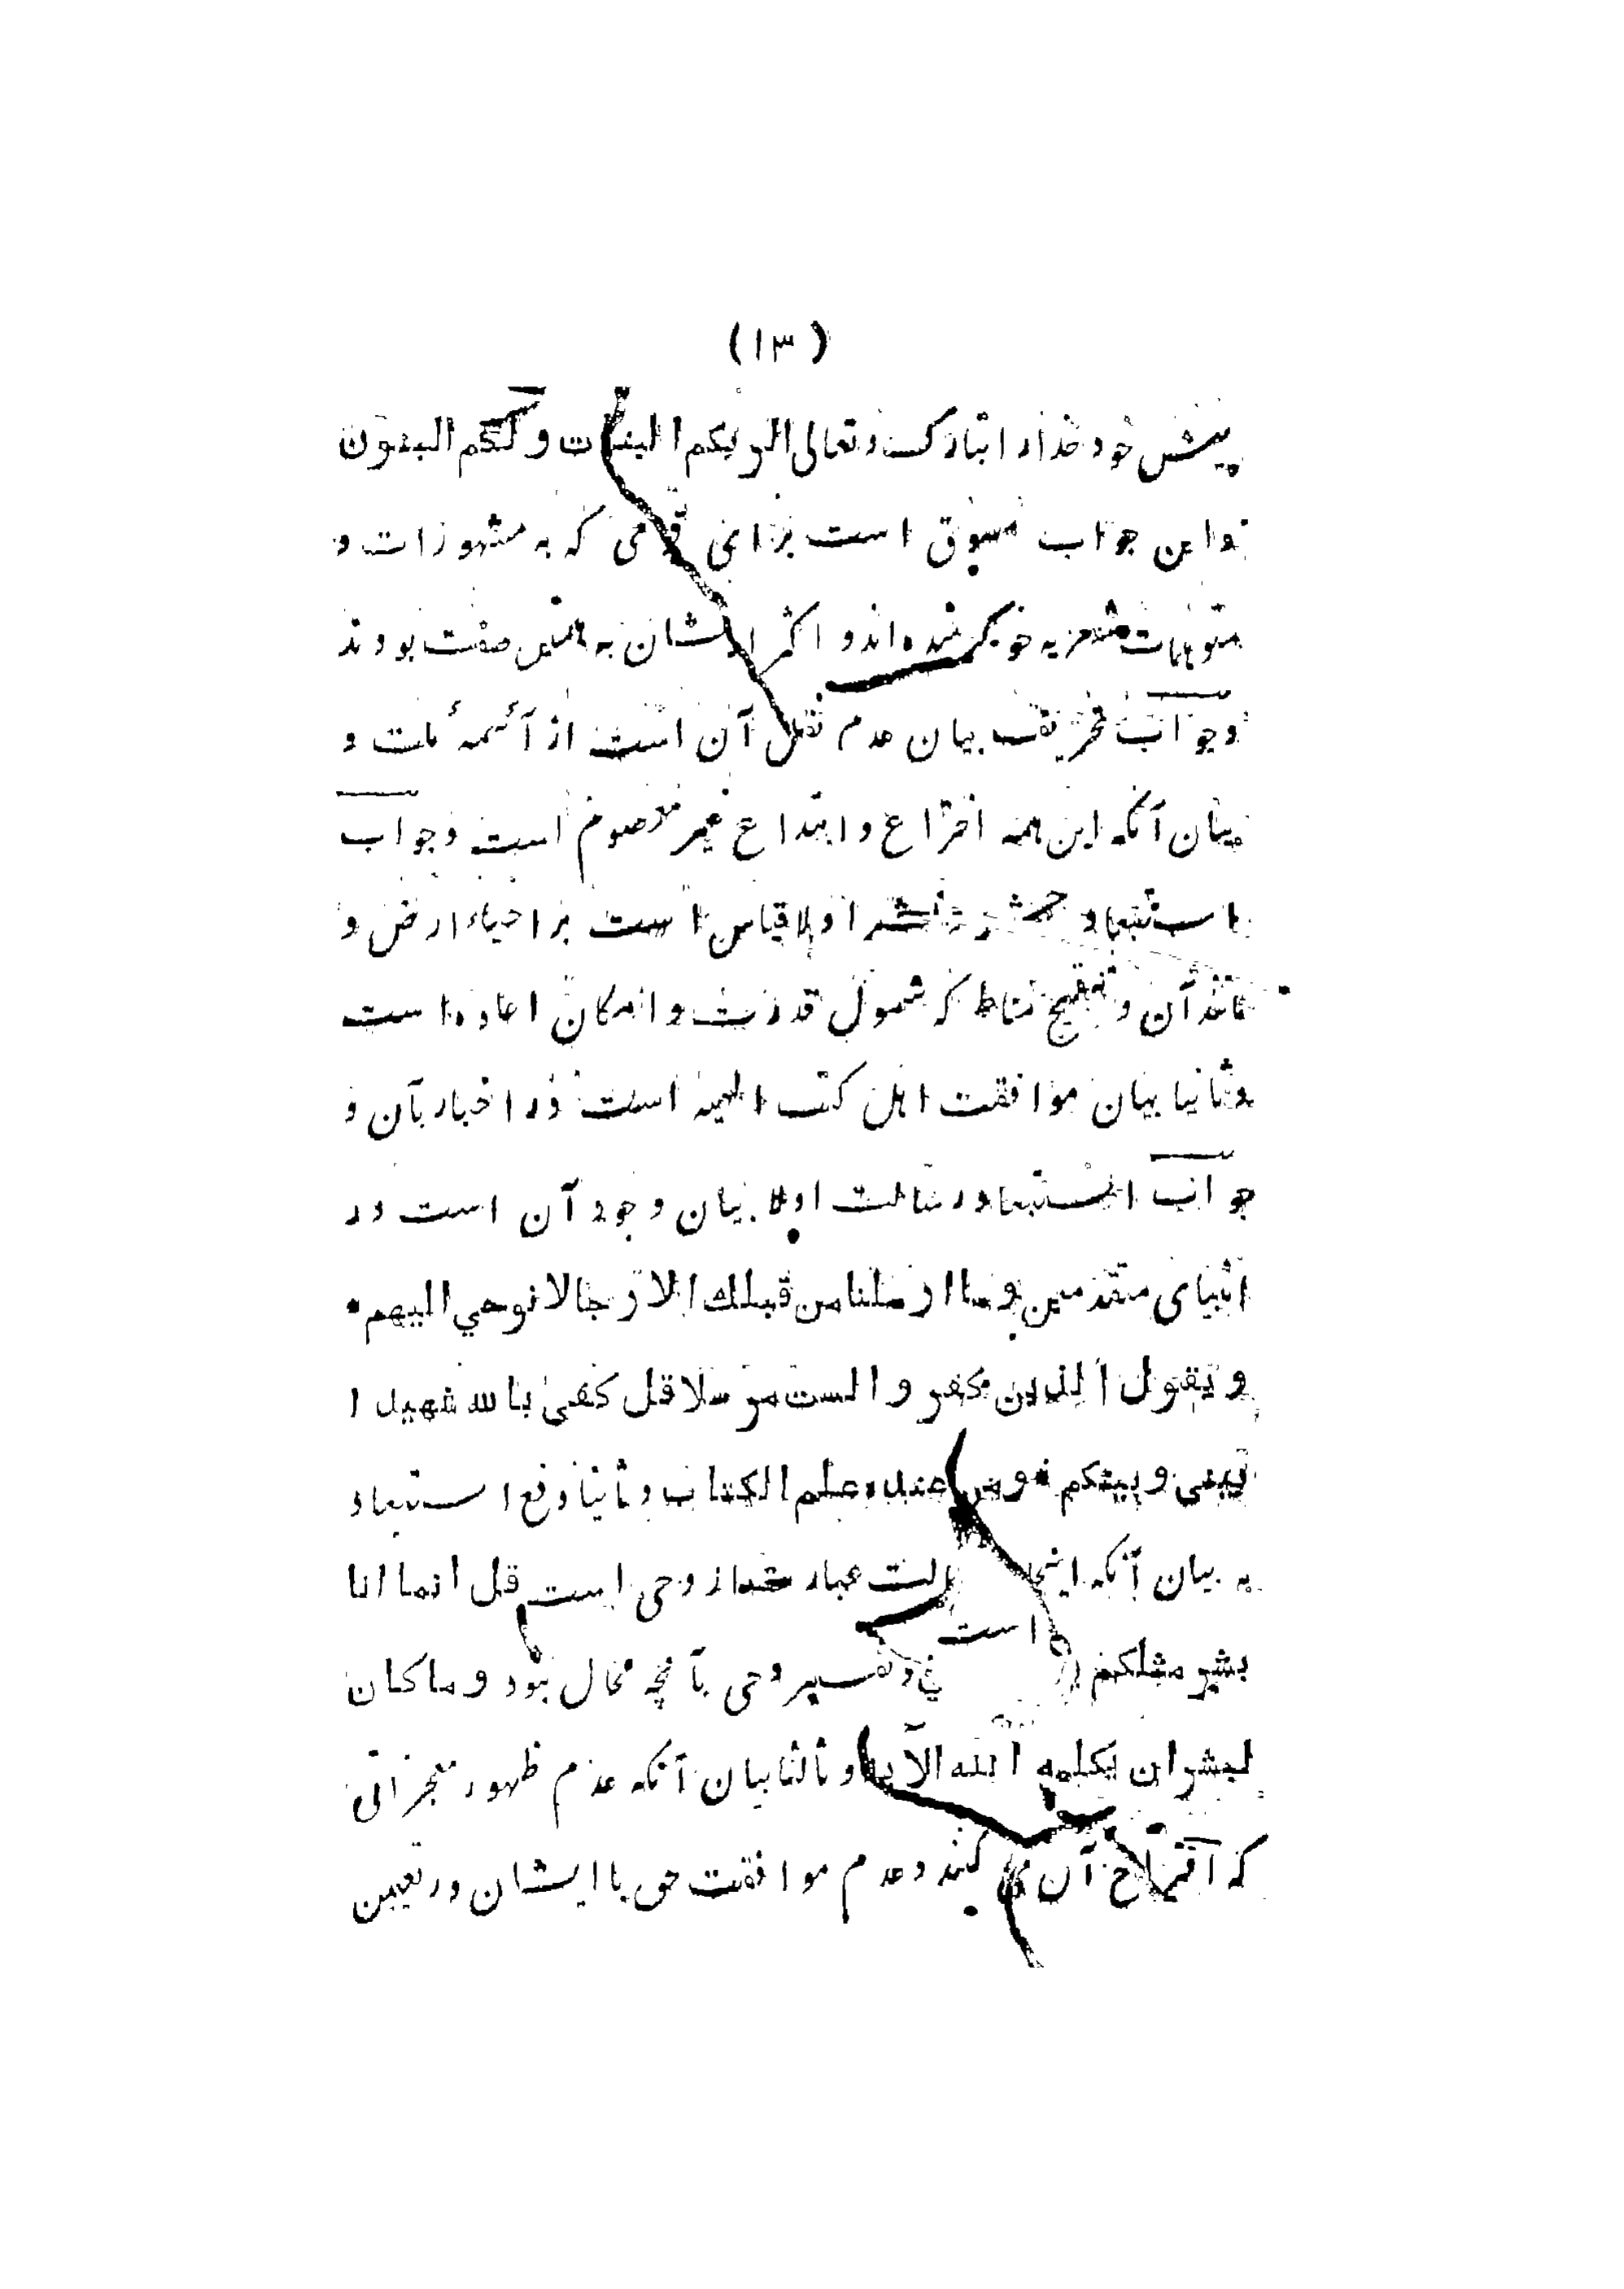 (۱۳)
پیش خود خدارا تبارک و تعالی الربکم البنات ولکم البنون
و این جواب مسوق است برای قومی که به مشهورات و
متوهمات شعریه خوگر شده اند و اکثر ایشان به همین صفت بودند
و جواب تحریف بیان عدم نقل آن است از آئمهٔ ملت و
بیان آنکه این همه اختراع و ابتداع غیر معصوم است و جواب
استبعاد حشر و نشر اولا قیاس است بر احیاء ارض و
مانند آن و تنقیح مناط که شمول قدرت و امکان اعاده است
و ثانیا بیان موافقت اهل کتب الهیه است در اخبار بآن و
جواب استبعاد رسالت اولا بیان وجود آن است در
انبیای متقدمین و ما ارسلنا من قبلك الا رجالا نوحي الیهم •
و یقول الذین کفروا لست مرسلا قل کفی بالله شهیدا
بینی و بینکم و من عنده علم الکتاب و ثانیا دفع استبعاد
به بیان آنکه اینجا رسالت عبارت از وحی است قل انما انا
است
بشر مثلکم و تفسیر وحی بآنچه محال نبود و ما کان
لبشر ان یکلمه الله الآیه و ثالثا بیان آنکه عدم ظهور معجزاتی
که اقتراح آن می کنند و عدم موافقت حق با ایشان در تعیین